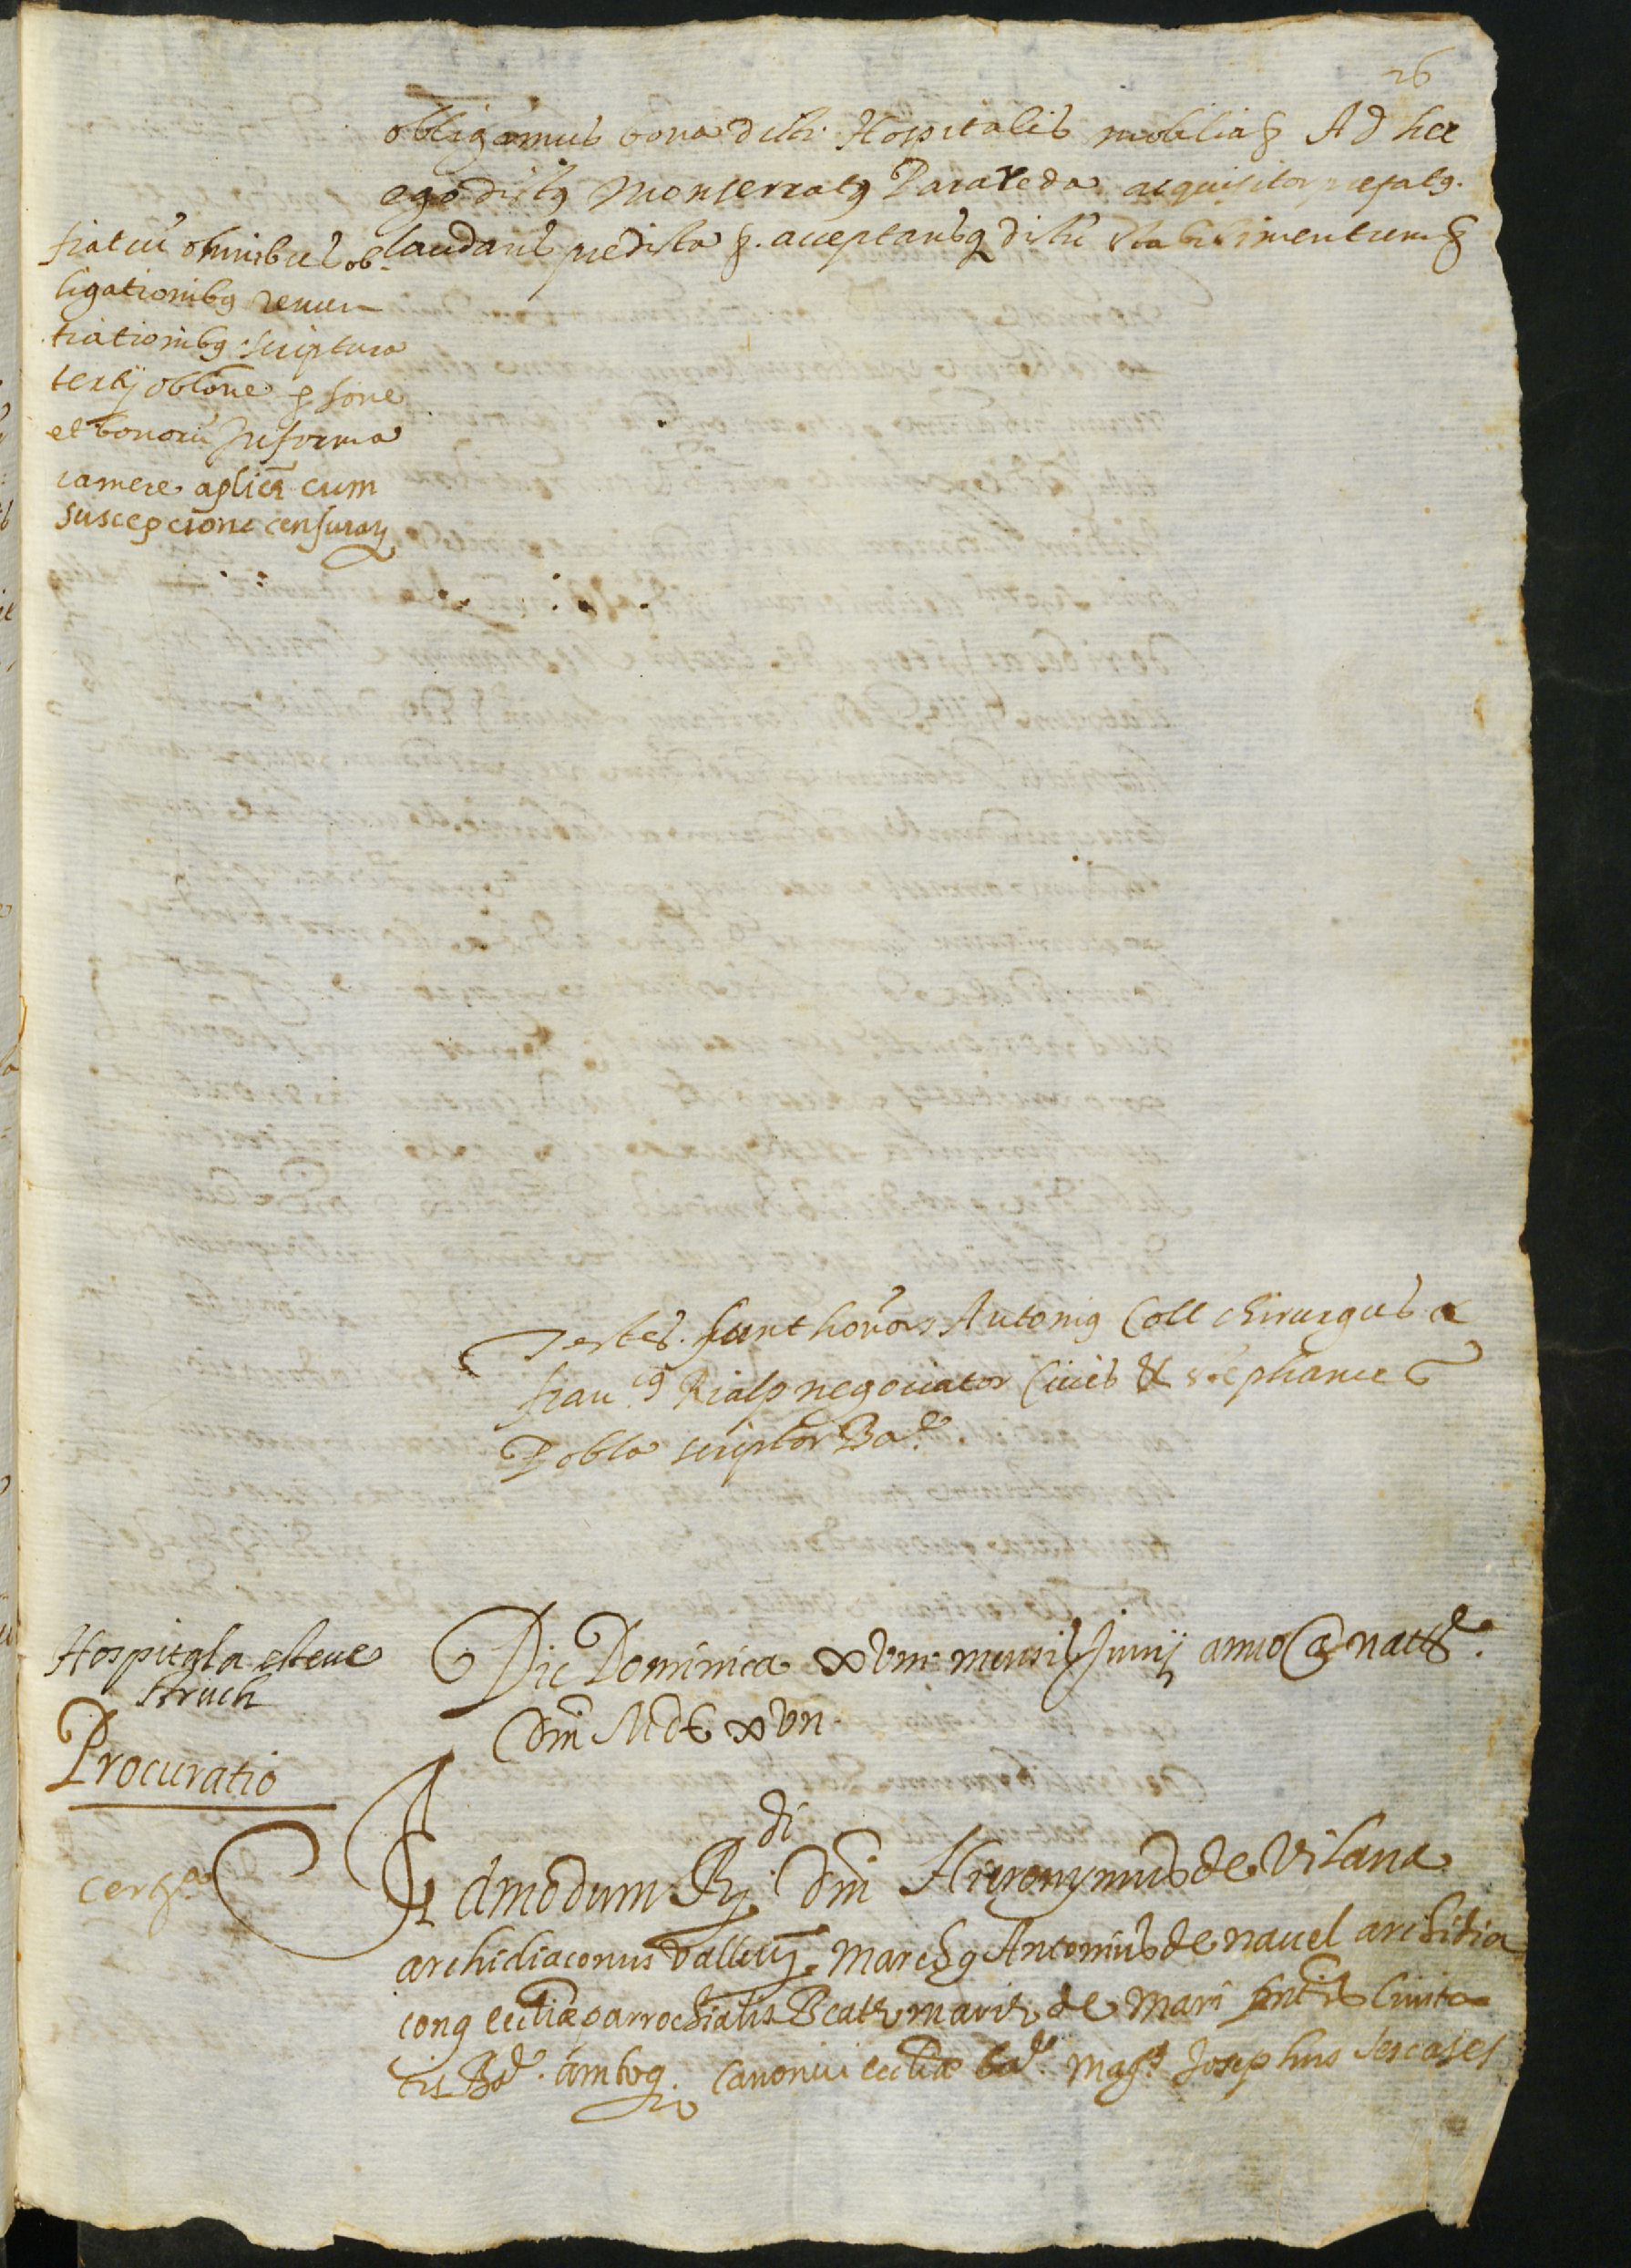 26
obligamus bona dicti Hospitalis mobilia & Ad hec
ego dictus Monserratus Parareda acquisitor prefatus.
laudans predicta &. acceptansq dictũ stabilimentum &
fiat cũ omnibus ob-
ligationibus renun-
tiationibus scriptura
tertij oblõne persone
et bonorũ In forma
camere aplicæ cum
suscepcione censurarum
Testes. sunt honor Antonius Coll chirurgus &
francus Rialp negociator Cives & Stephanus
Pobla scriptor Bar.
Hospital den esteve
struch
Procuratio
Die Dominica xviii mensis Junij anno a natte.
Dni MDC xvii
Admodum Rdi. Dni Hieronymus de Vilana
archidiaconus Vallen. Marchus Antonius de navel archidia
conus ecclie parrochialis Beate marie de Mari pntis Civita
tis Bar. ambo. Canonici ecclie bar. Magcus Josephus sescases